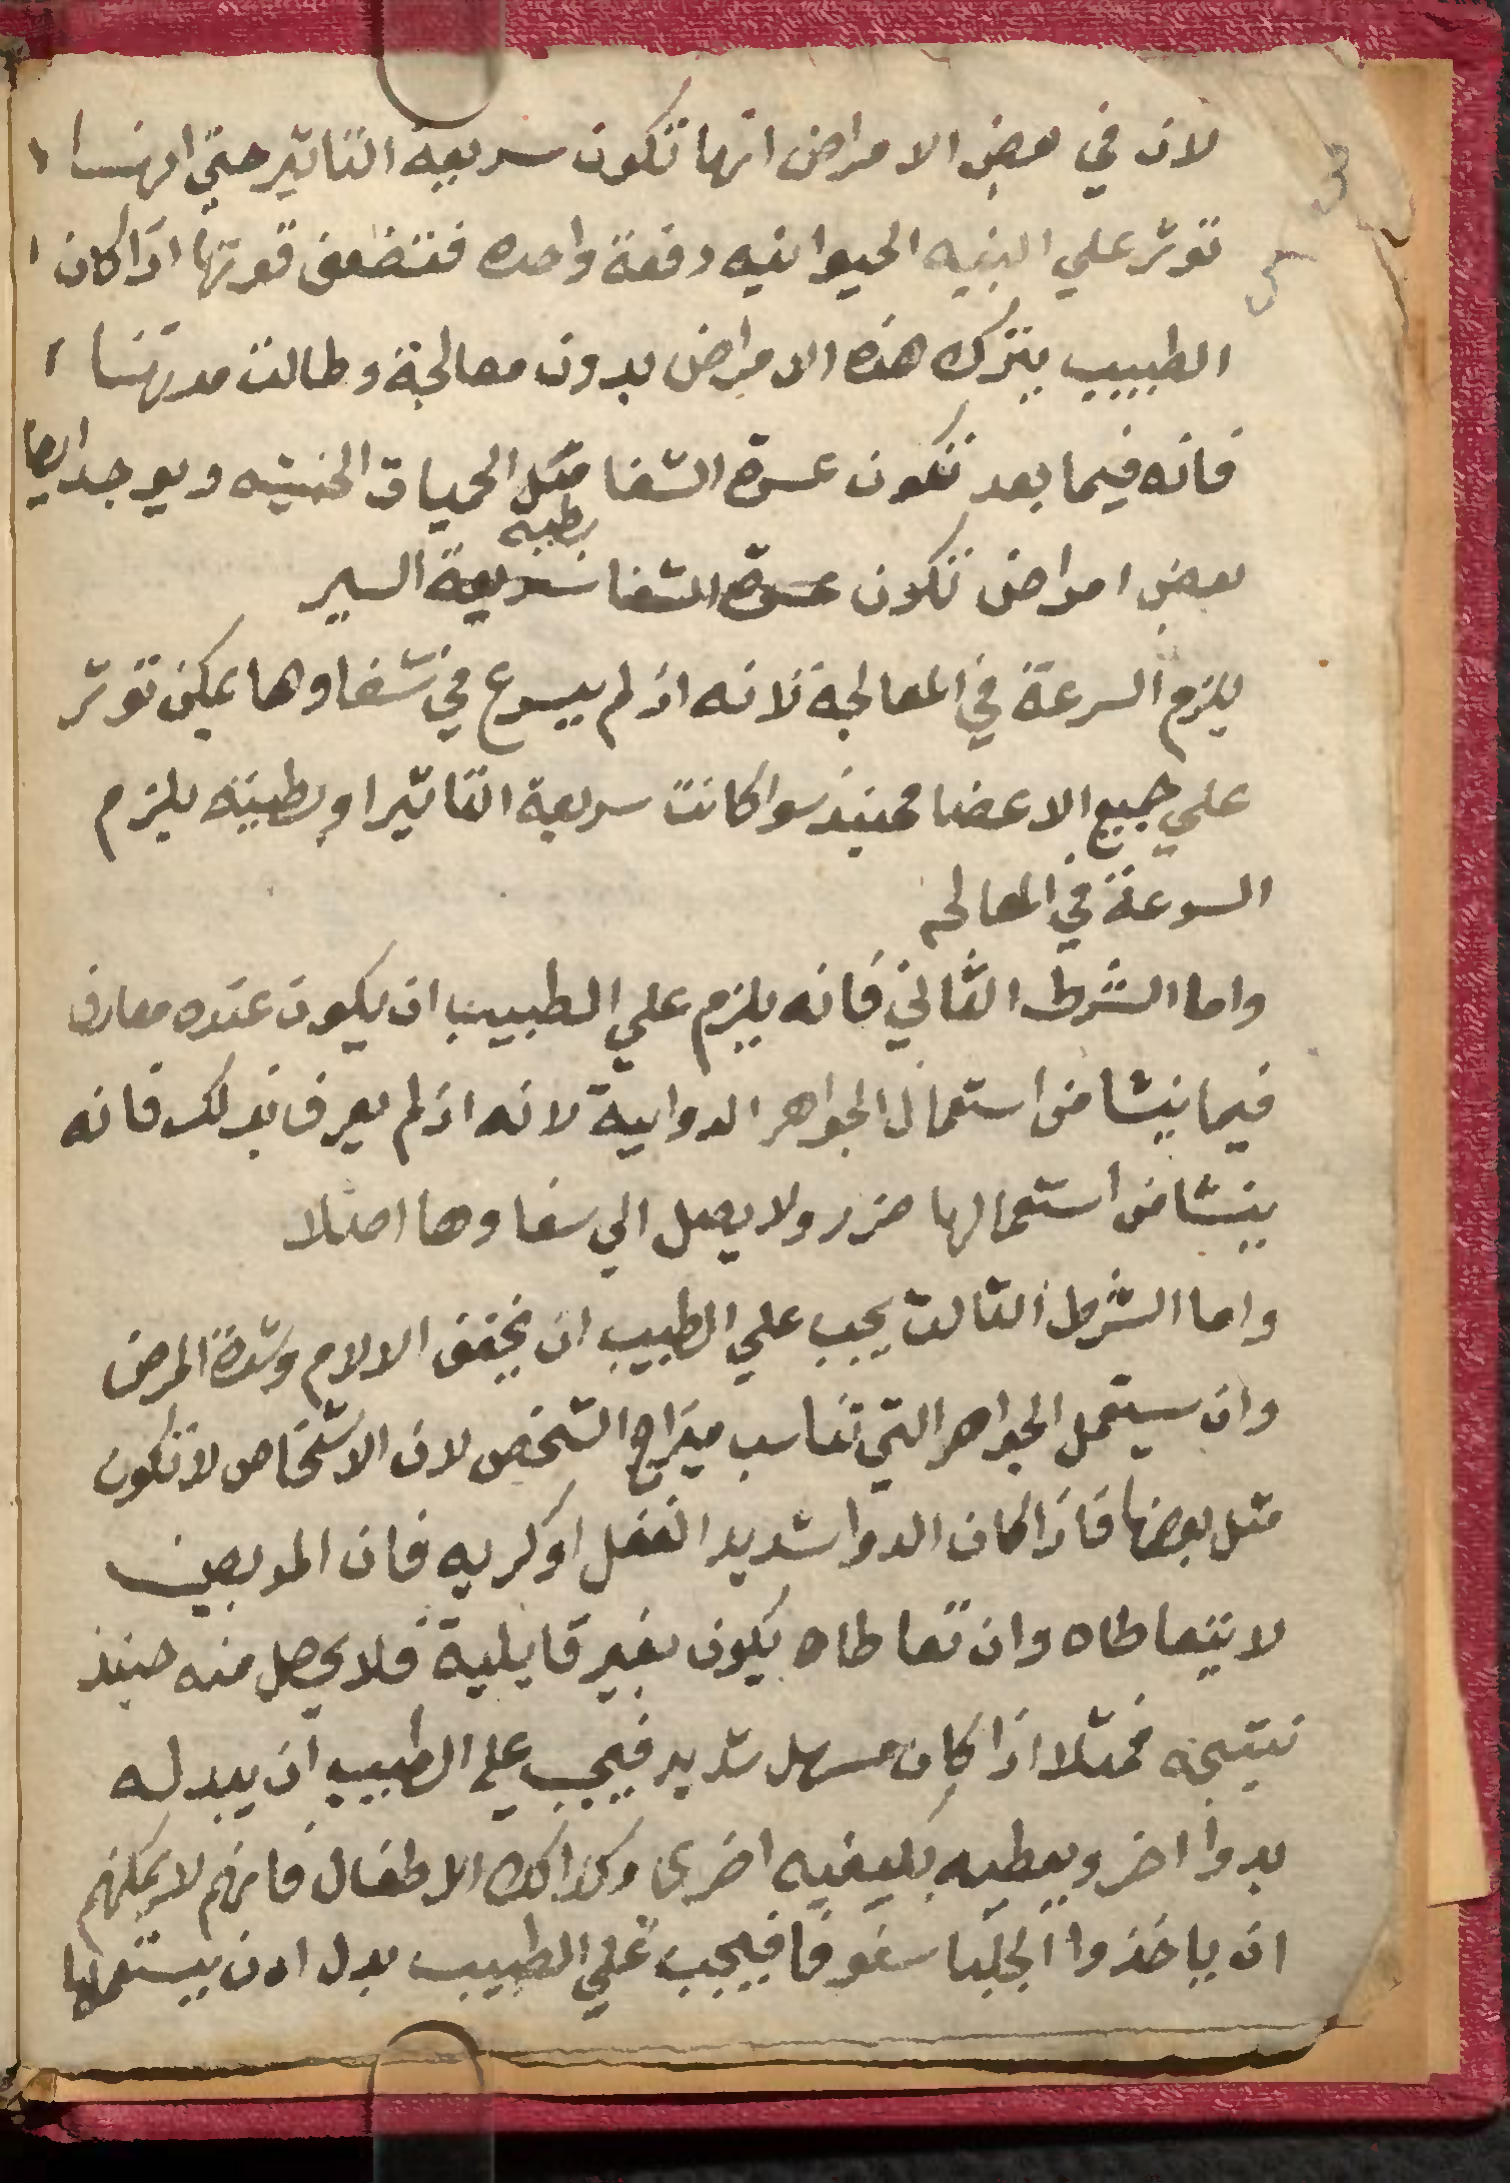 لان في بعض الامراض انها تكون سريعة التاثير حتي انها
توثر علي البنيه الحيوانيه دفعة واحده فتضعف قوتها اذا كان
الطبيب يترك هذه الامراض بدون معالجة وطالت مدتها
فانه فيما بعد تكون عسرة الشفا مثل الحميات الخبيثه ويوجد ايضا
بعض امراض تكون عسرة الشفا سريعة بطيه السير
يلزم السرعة في المعالجة لانه اذ لم يسرع في شفاوها يمكن توثر
علي جميع الاعضا فحينيذ سوا كانت سريعة التاثير او بطييه يلزم
السرعة في المعالجه
واما الشرط الثاني فانه يلزم علي الطبيب ان يكون عنده معارف
فيما ينشا من استعمال الجواهر الدوايية لانه اذ لم يعرف بذلك فانه
ينشا من استعمالها ضرر ولا يصل الي شفاوها اصلا
واما الشرط الثالث يجب علي الطبيب ان يخفف الالام وشدة المرض
وان يستعمل الجواهر التي تناسب ميزاج الشخص لان الاشخاص لا تكون
مثل بعضها فاذا كان الدوا شديد الفعل او كريه فان المريض
لا يتعاطاه وان تعاطاه يكون بغير قابلية فلا يحصل منه حينيذ
نتيجه فمثلا اذا كان مسهل شديد فيجب علي الطبيب ان يبدله
بدوا اخر ويعطيه بكيفيه اخرى وكذالك الاطفال فانهم لا يمكنهم
ان ياخذوا الجلبا سفوفا فيجب علي الطبيب بدل ان يستعملها